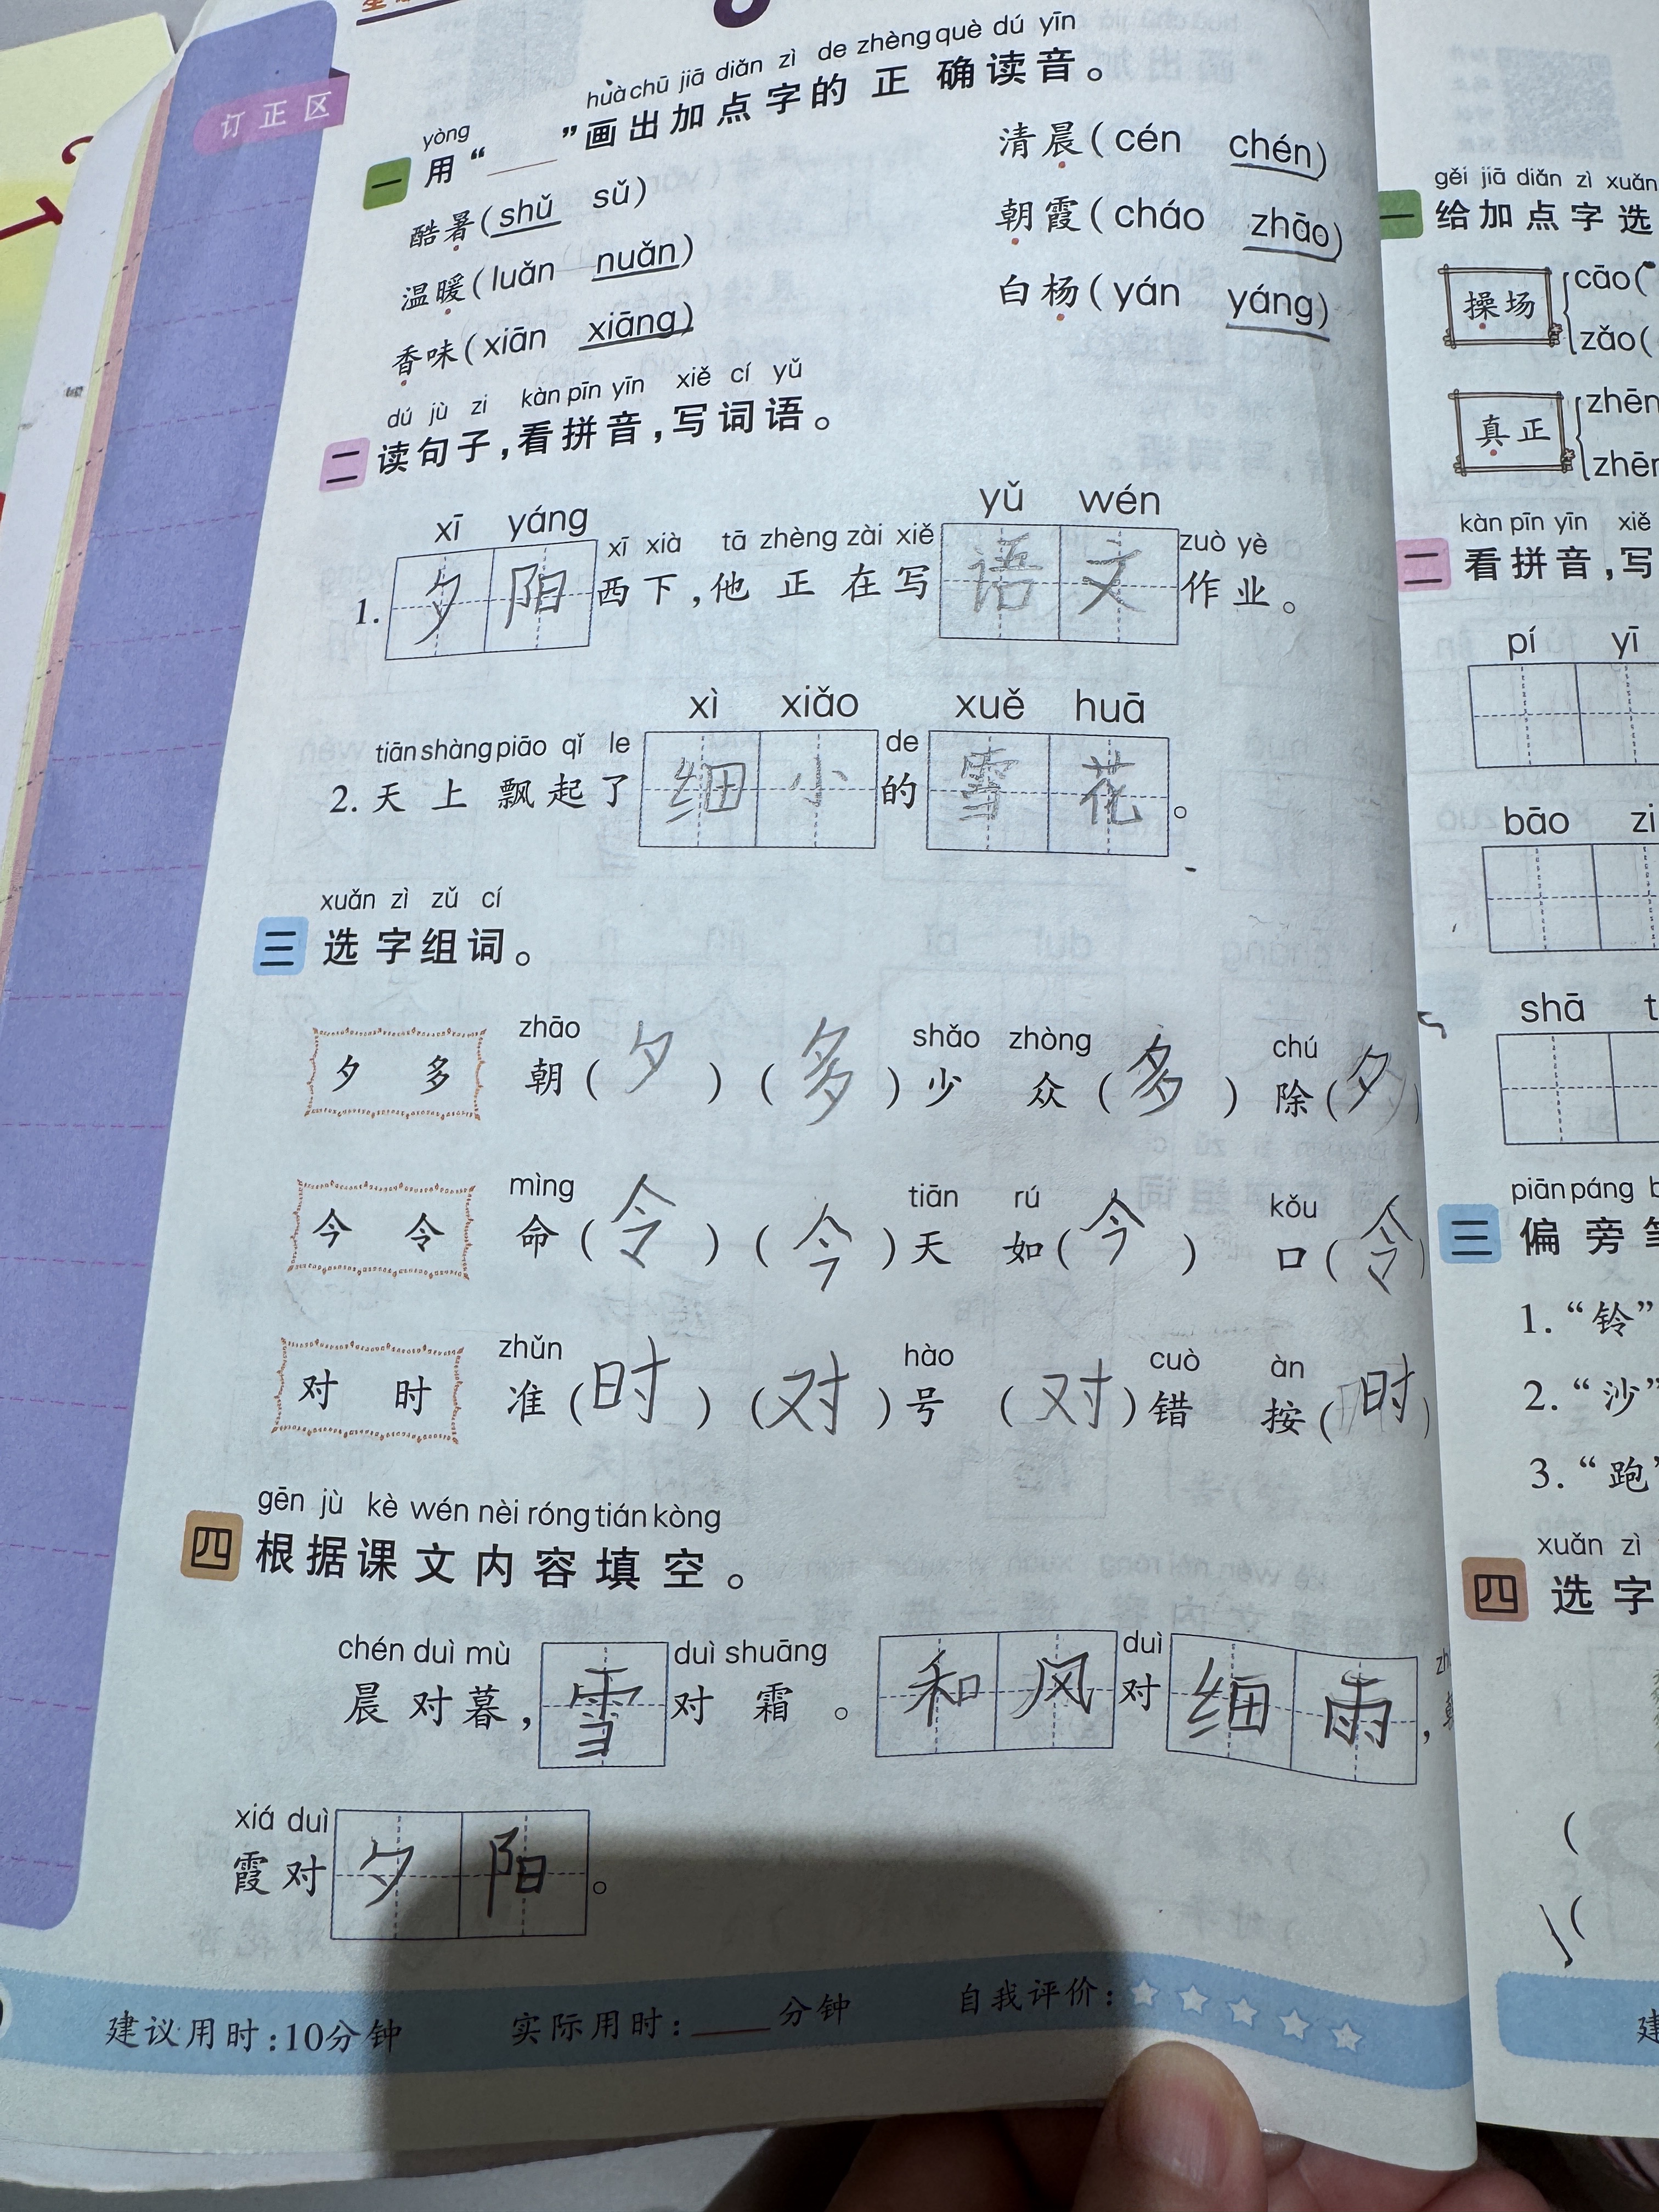 订正区
yòng huà chū jiā diǎn zì de zhèng què dú yīn
一 用“____”画出加点字的正确读音。
酷暑(shǔ sǔ) 清晨(cén chén)
温暖(luǎn nuǎn) 朝霞(cháo zhāo)
香味(xiān xiāng) 白杨(yán yáng)
dú jù zi kàn pīn yīn xiě cí yǔ
二 读句子,看拼音,写词语。
xī yáng xī xià tā zhèng zài xiě yǔ wén zuò yè
1. 夕阳西下,他正在写语文作业。
tiān shàng piāo qǐ le xì xiǎo de xuě huā
2. 天上飘起了细小的雪花。
xuǎn zì zǔ cí
三 选字组词。
zhāo shǎo zhòng chú
夕 多 朝(夕)(多)少 众(多) 除(夕)
mìng tiān rú kǒu
今 令 命(令)(今)天 如(今) 口(令)
zhǔn hào cuò àn
对 时 准(时)(对)号 (对)错 按(时)
gēn jù kè wén nèi róng tián kòng
四 根据课文内容填空。
chén duì mù duì shuāng duì
晨对暮,雪对霜。和风对细雨,
xiá duì
霞对夕阳。
建议用时:10分钟 实际用时:____分钟 自我评价:
gěi jiā diǎn zì xuǎn
一 给加点字选
操场 cāo(
zǎo(
真正 zhēn
zhēn
kàn pīn yīn xiě
二 看拼音,写
pí yī
bāo zi
shā
piān páng
三 偏旁
1.“铃”
2.“沙”
3.“跑”
xuǎn zì
四 选字
(
(
建